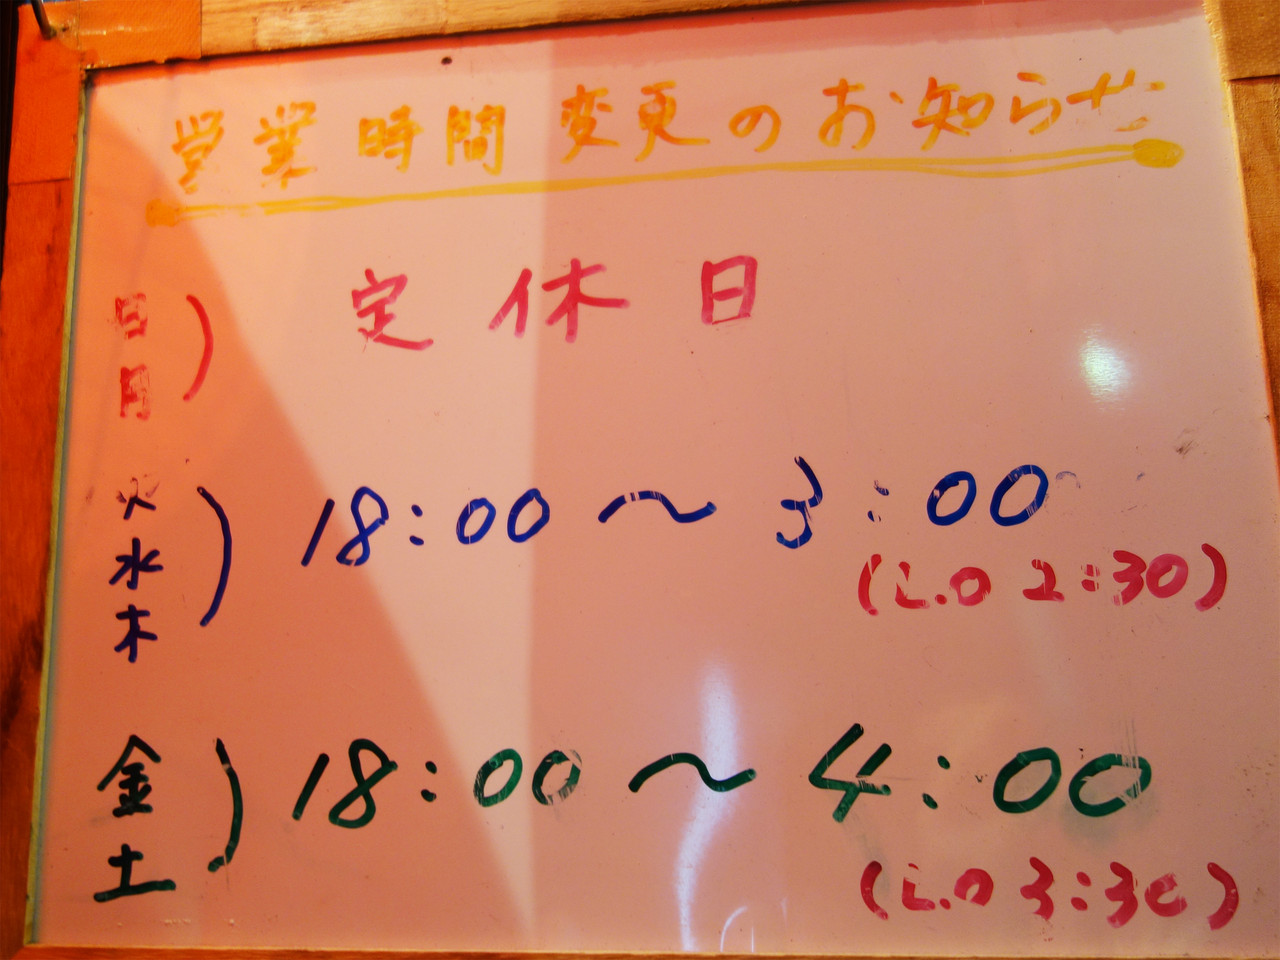 営業時間変更のお知らせ
日
月
) 定休日
火
水
木
) 18:00～3:00
(L.O 2:30)
金
土
) 18:00～4:00
(L.O 3:30)